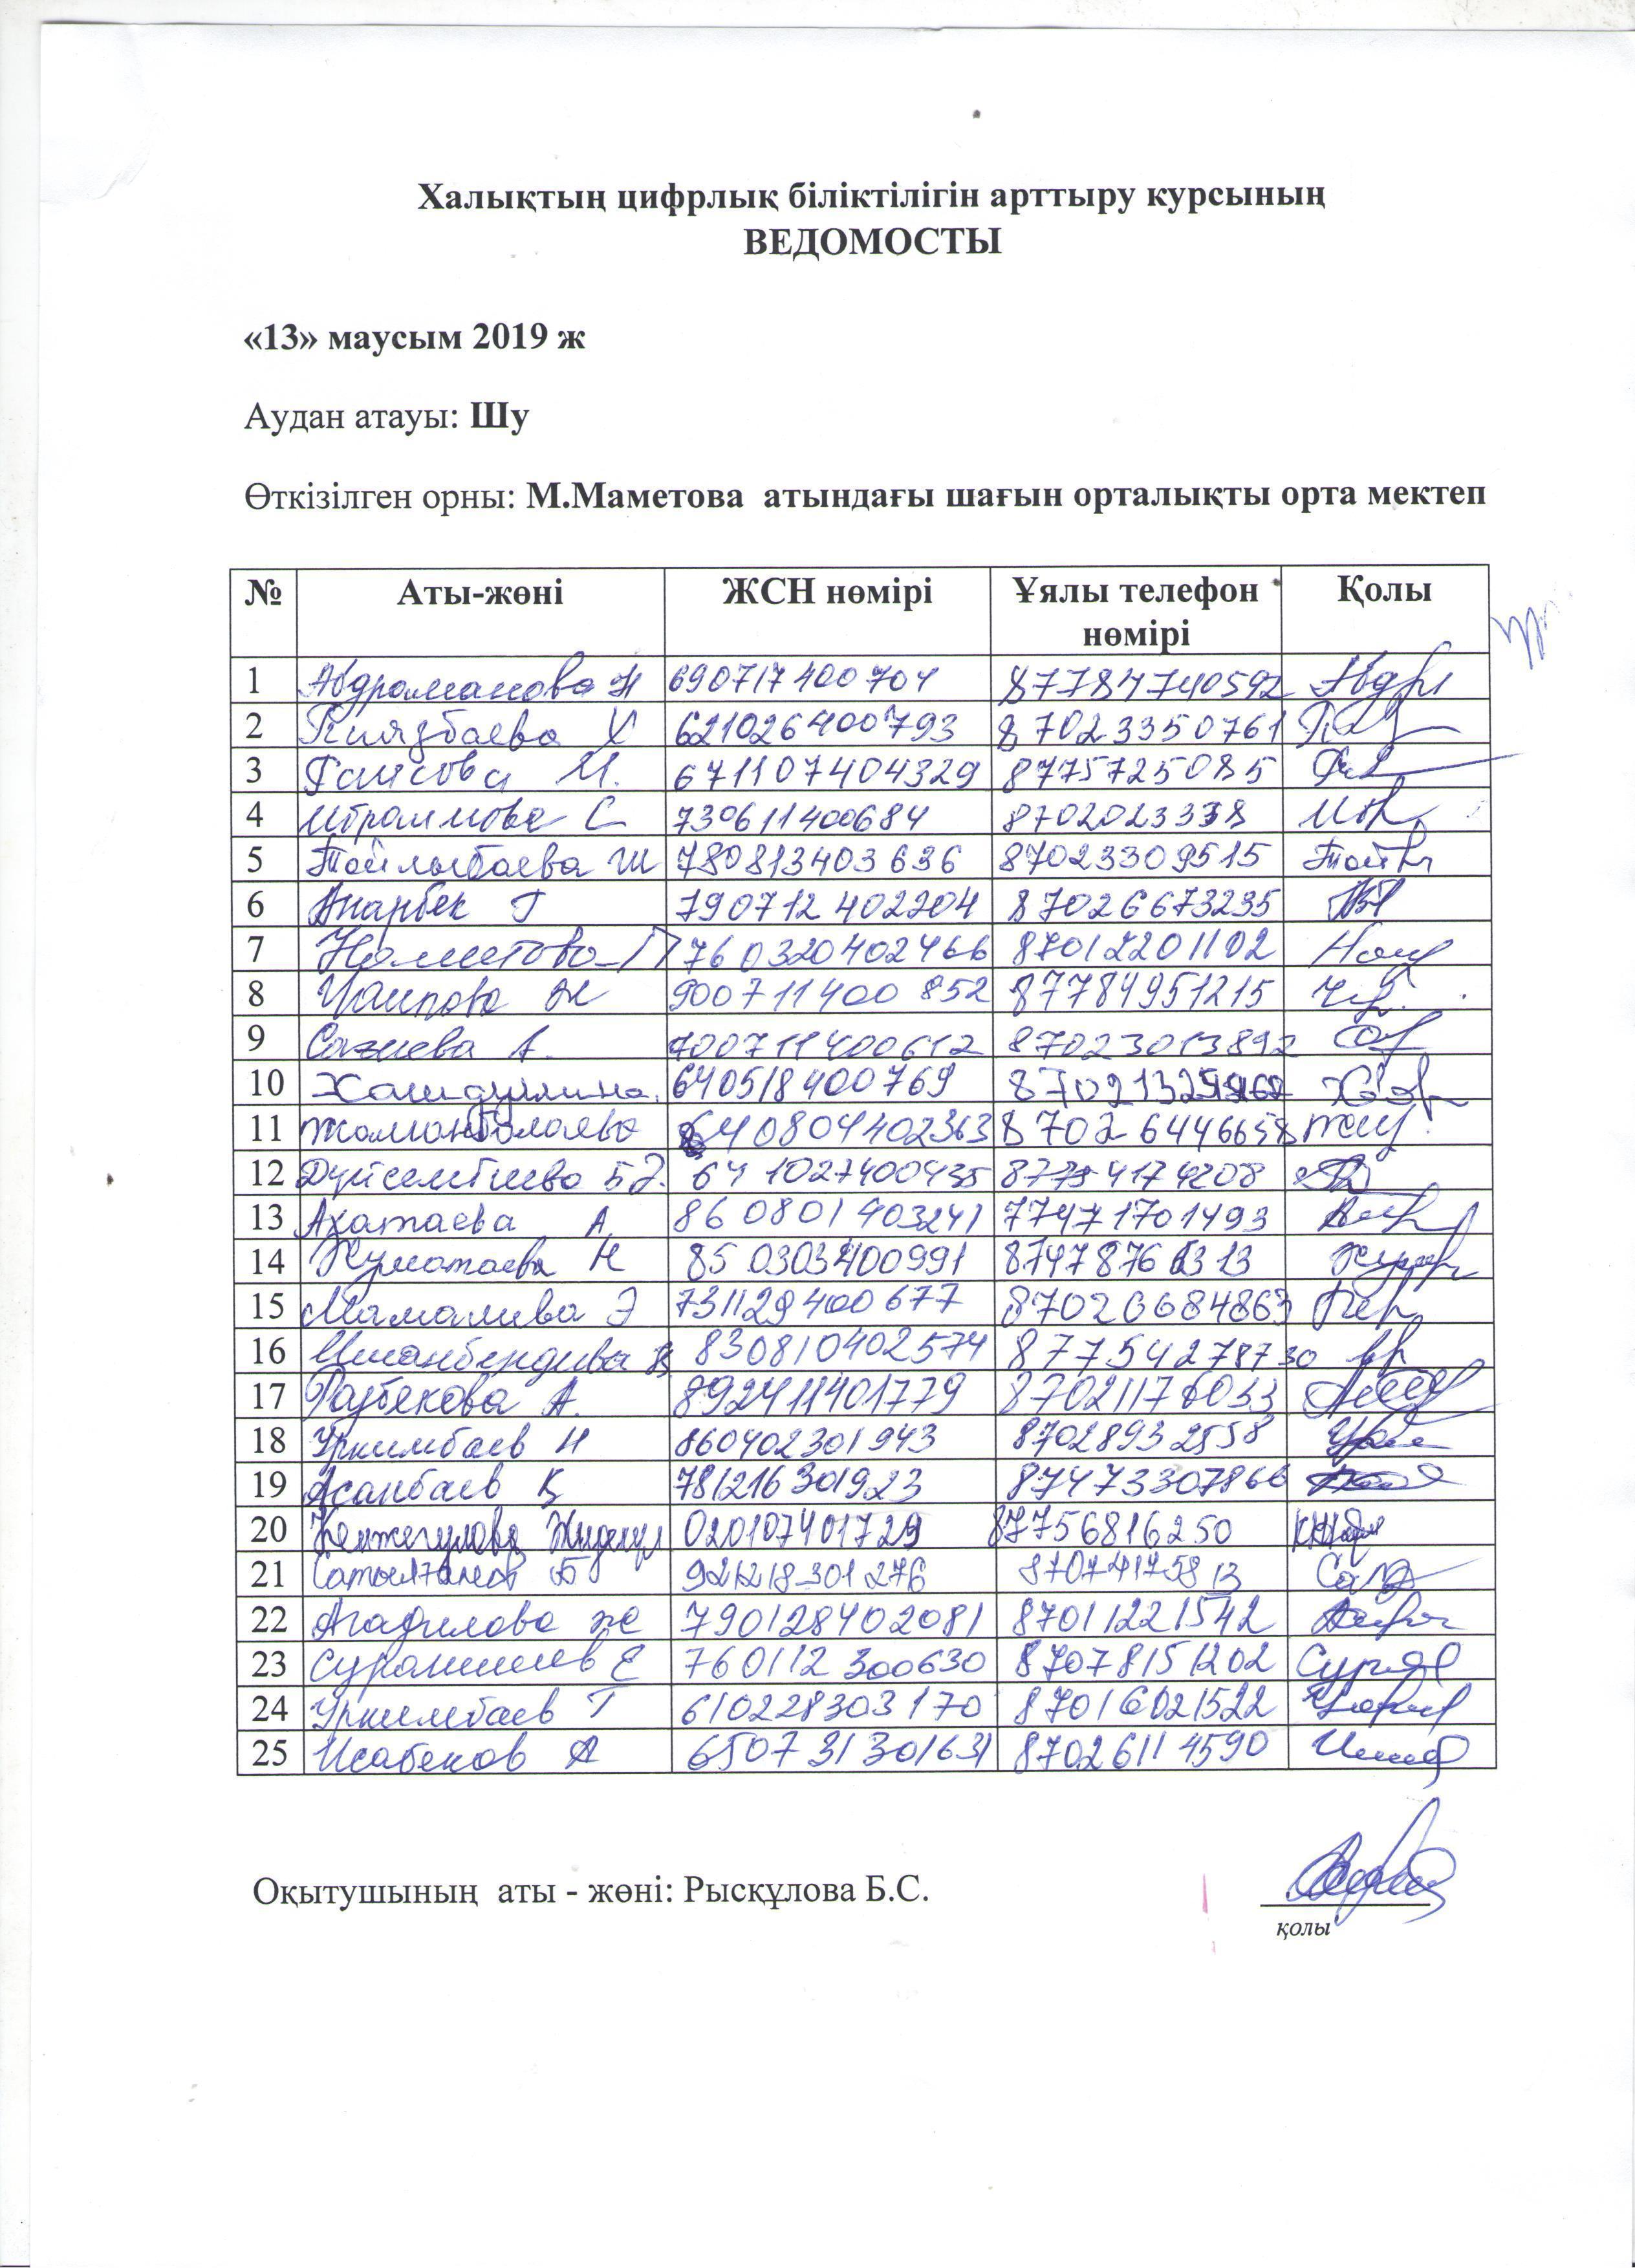 Халықтың цифрлық біліктілігін арттыру курсының
ВЕДОМОСТЫ
«13» маусым 2019 ж
Аудан атауы: Шу
Өткізілген орны: М.Маметова атындағы шағын орталықты орта мектеп
№ Аты-жөні ЖСН нөмірі Ұялы телефон нөмірі Қолы
1 Абдраманова Н 690717400704 87784740592
2 Ниязбаева Х 621026400793 87023350761
3 Гаисова М. 671107404329 8775725085
4 Ибраимова С 730611400684 8702023338
5 Тойлыбаева Ш 780813403636 87023309515
6 Анарбек Г 790712402204 87026673235
7 Наметова П 760320402466 87012201102
8 900711400852 87784951215
9 Сазиева А. 700711400612 87023013892
10 640518400769
11 Жаманбалаева 640804402363 87026446658
12 Дуйсембиева Б 641027400435
13 Ахатаева А 860801403241 77471701493
14 Жуматаева Н 850303400991
15 Мамалива Э 731129400677 87026684863
16 830810402574 87754278730
17 Раубекова А. 892411401779
18 Уркимбаев Н 860402301943 87028932558
19 Асанбаев Қ 781216301923 87473307866
20 Кенжегулова 020107401729 87756816250
21 921218301276 87074175813
22 Агадилова Ж 790128402081 87011221542
23 Сураншиев Е 760112300630 87078151202
24 Уркимбаев Г 610228303170 87016021522
25 Исабеков А 650731301631 87026114590
Оқытушының аты - жөні: Рысқұлова Б.С.
қолы